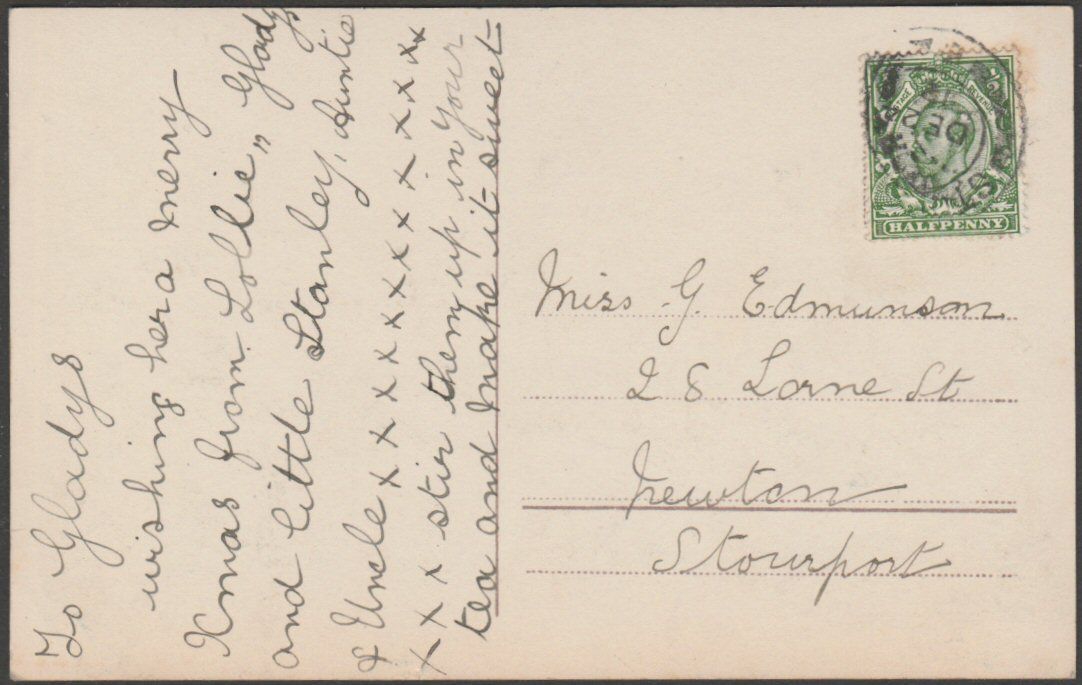 To Gladys
wishing her a merry
Xmas from Lollie,, Gladys
and little Stanley, Auntie
& Uncle x x x x x x x x x x x
x x x stir them up in your
tea and make it sweet
POSTAGE REVENUE
HALFPENNY
DE
Miss G. Edmunson
28 Lorne St
Newton
Stourport